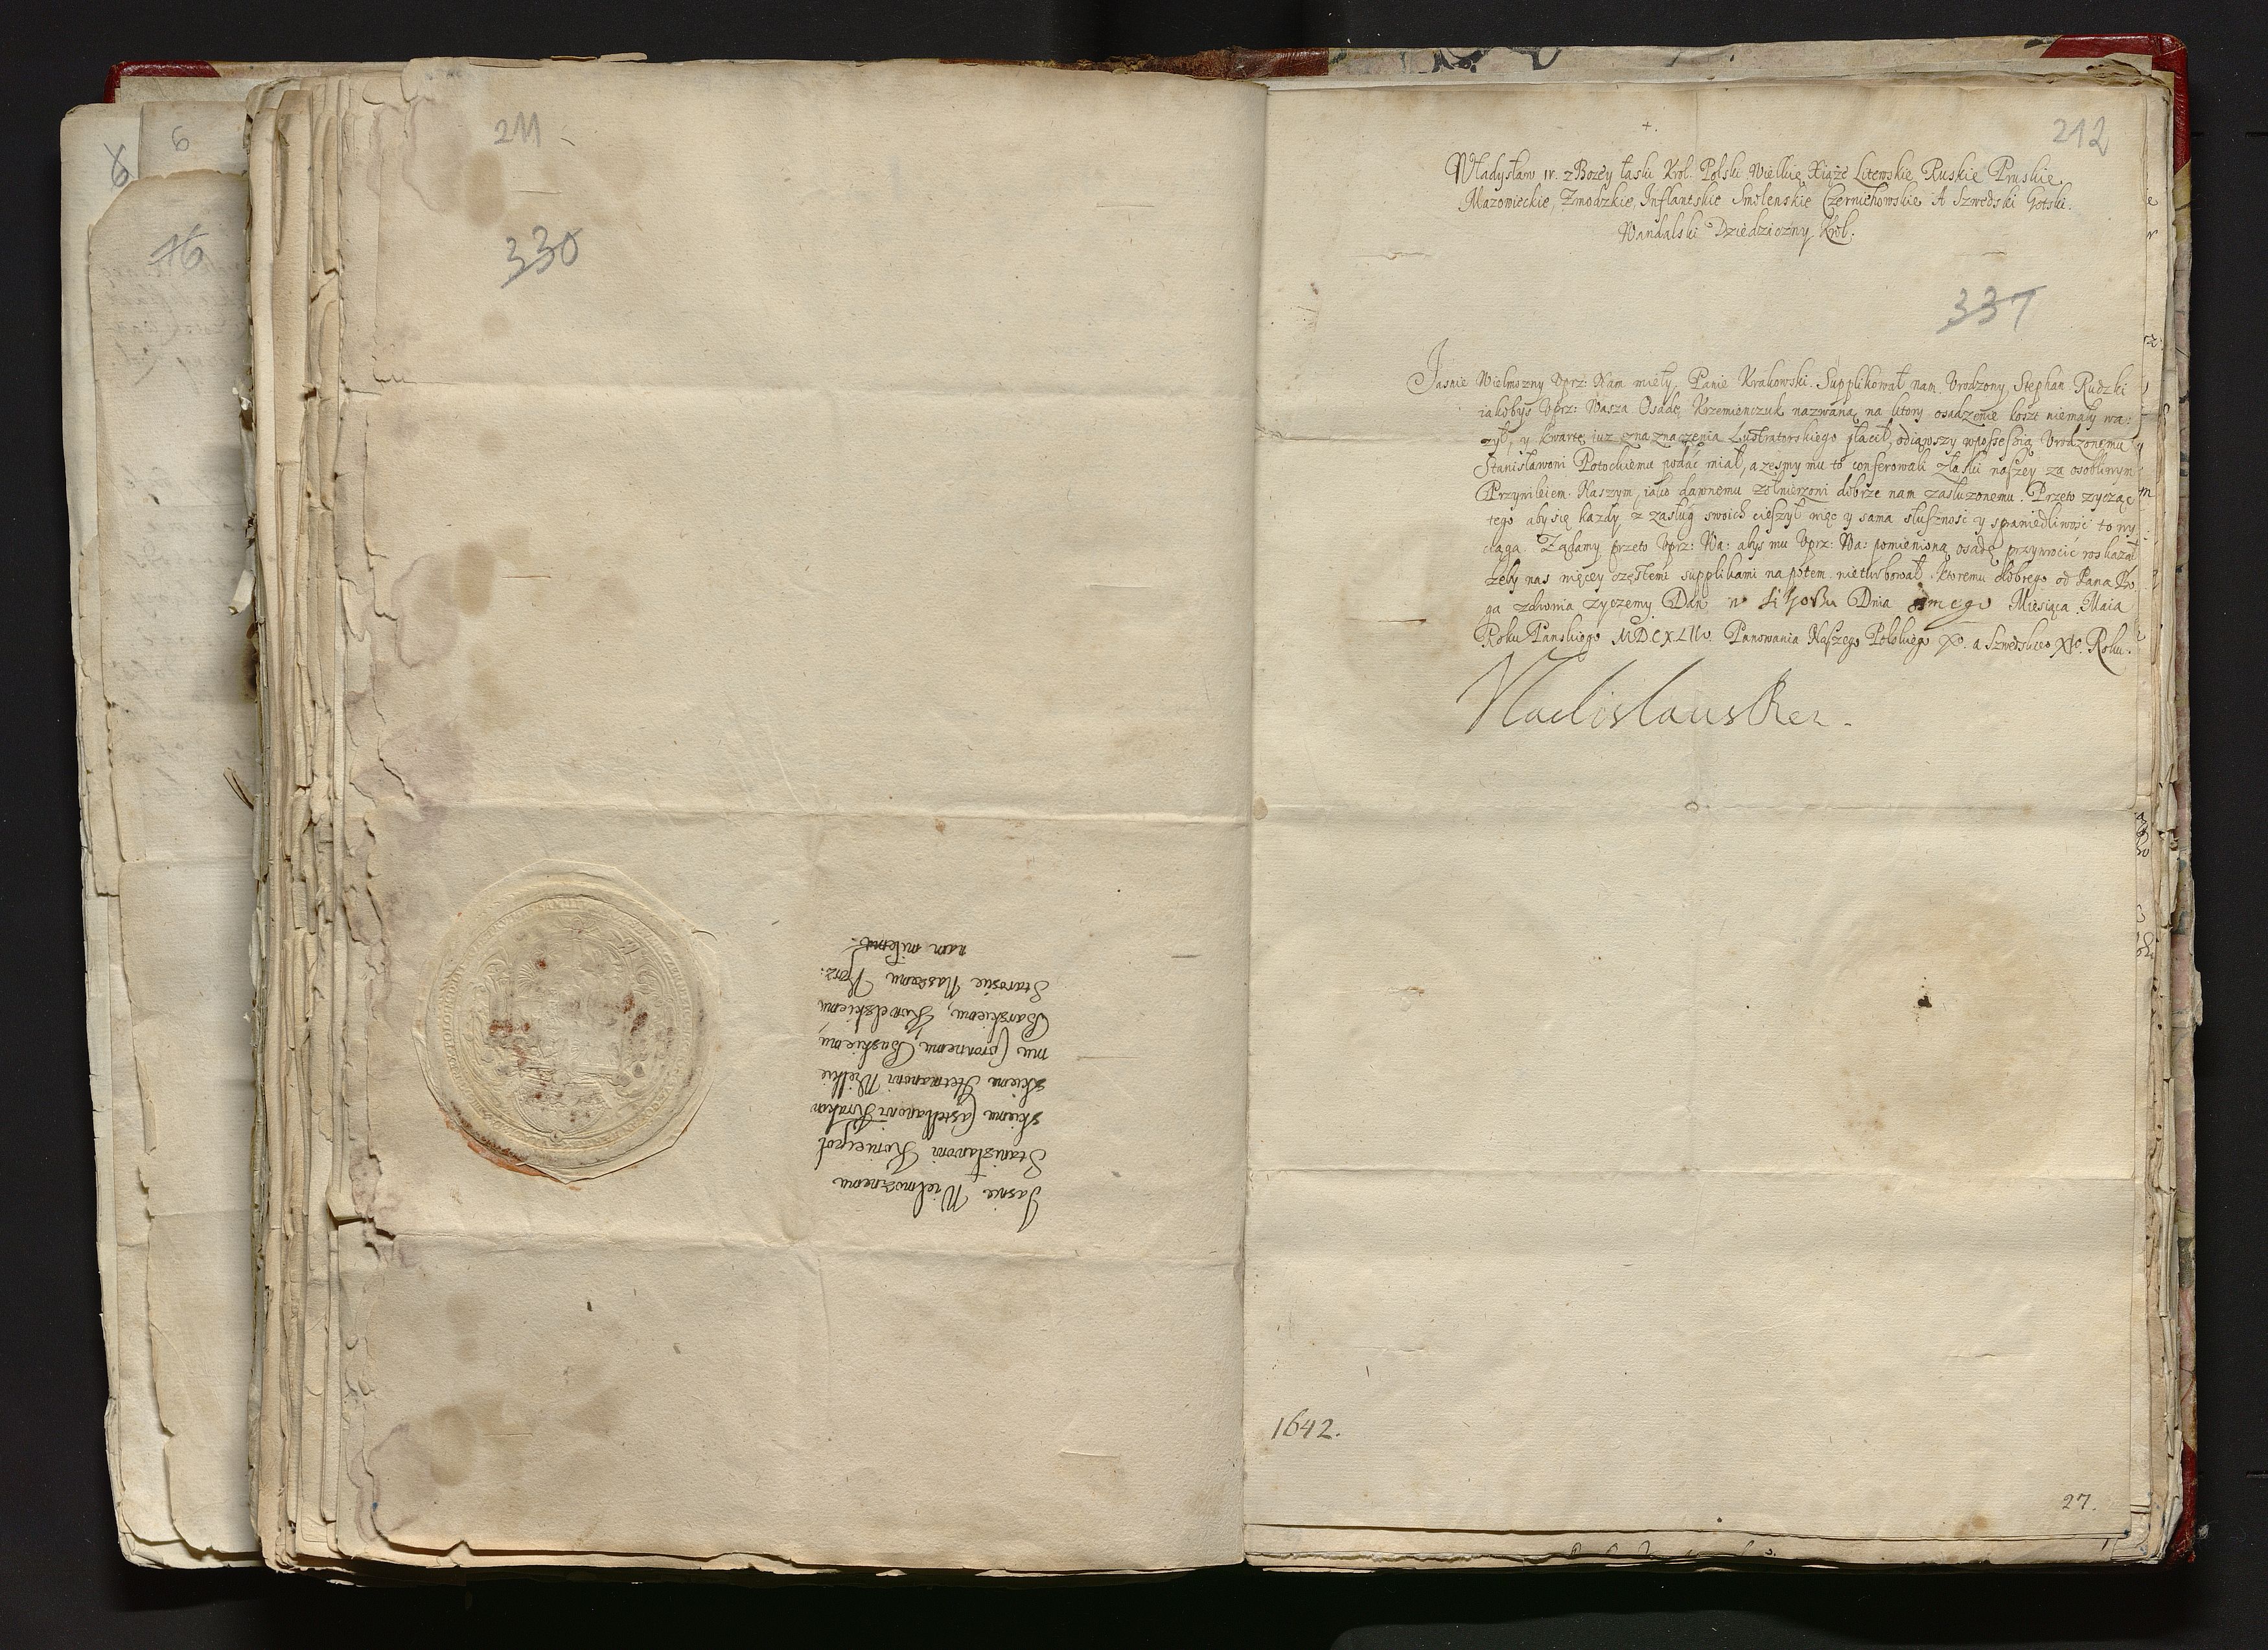 211
330
Jasnie Wielmoznemu
Stanisławowi Koniecpol
skiemu Castellanowi Krakow
skiemu Hetmanowi Wielkie
mu Coronnemu Buskiemu
Barskiemu, Kowelskiemu
Staroscie Naszemu Vprz:
nam miłemu
212
Władysław IV. z Bozey łaski Krol Polski Wielkie Xiąże Litewskie Ruskie Pruskie,
Mazowieckie, Zmodzkie, Inflantskie Smolenskie Czerniehowskie A Szwedski Gotski.
Wandalski Dziedziczny Krol.
337
Jasnie Wielmozny Vprz: Nam miely, Panie Krakowski. Supplikował nam Vrodzony Stephan Rudzki
iakobys Vprz: Wasza Osadę Krzemienczuk nazwaną na ktory osadzenie koszt niemały wa:
zył, y kwartę iuz z naznaczenia Lustratorskiego płacił, odiąwszy wposseßią Vrodzonemu
Stanisławowi Potockiemu podać miał, a zesmy mu to conferowali złaski naszey za osobliwym
Przywileiem Naszym, iako dawnemu zołnierzowi dobrze nam zasłuzonemu. Przeto zycząc
tego aby się kazdy z zasług swoich cieszył więc y sama słusznosć y sprawiedliwosć to wy
ciąga. Ządamy przeto Vprz: Wa: abys mu Vprz: Wa: pomienioną osadę przywrocić roskazał
zeby nas więcey częstemi supplikami napotem nieturbował. ktoremu dobrego od Pana Bo
ga zdrowia zyczemy. Dan w Dnia Miesiąca Maia
Roku Panskiego MDCXLIIo. Panowania Naszego Polskiego Xo. a Szwedskiego XIo. Roku.
Vladislaus Rex.
1642.
27.